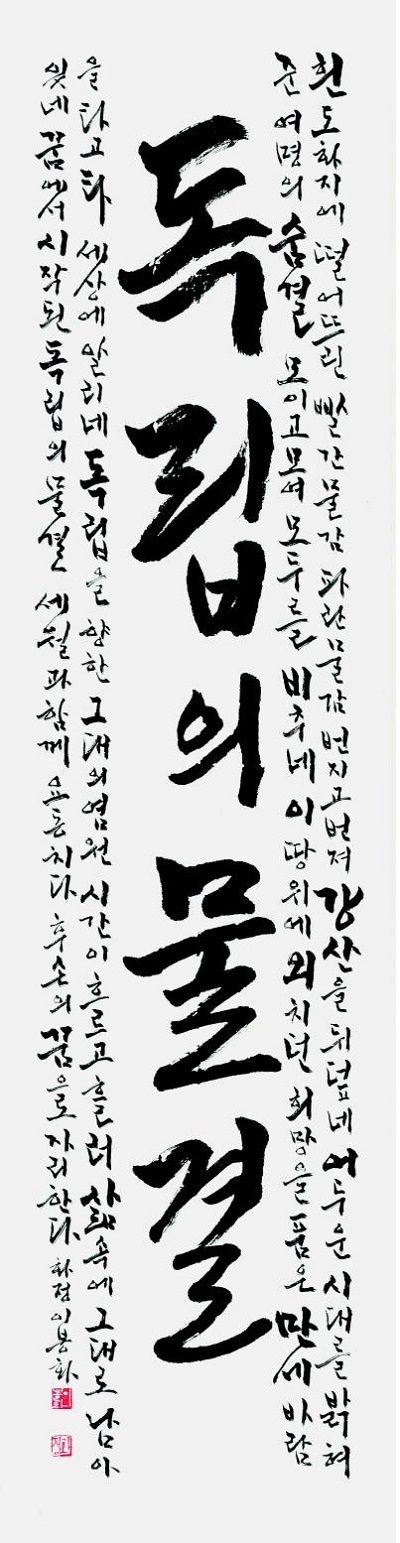 흰 도화지에 떨어뜨린 빨간 물감 파란 물감 번지고 번져 강산을 뒤덮네 어두운 시대를 밝혀
준 여명의 숨결 모이고 모여 모두를 비추네 이 땅 위에 외치던 희망을 품은 만세 바람
독립의 물결
을 타고 타 세상에 알리네 독립을 향한 그대의 염원 시간이 흐르고 흘러 삶 속에 그대로 남아
잊네 꿈에서 시작된 독립의 물결 세월과 함께 요동치다 후손의 꿈으로 자리한다 화정 이봉화